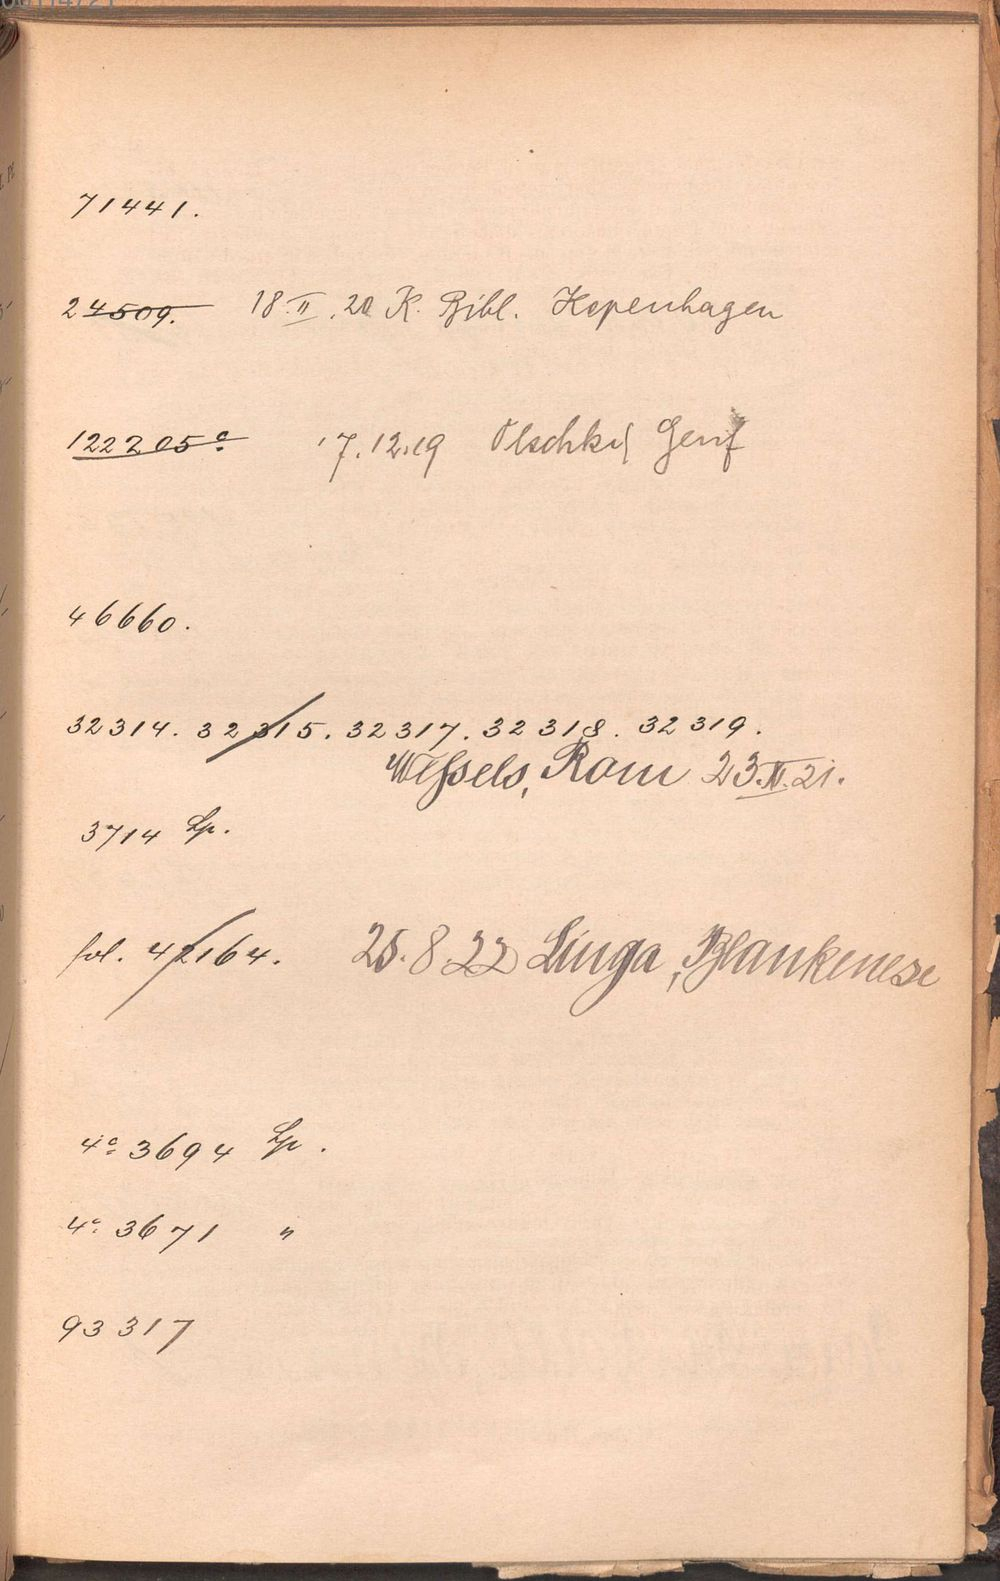 71441.
24509. 18.II.20 K. Bibl. Kopenhagen
122205ᵃ. 17.12.19 Olschki, Genf
46660.
32314. 32315. 32317. 32318. 32319.
Weſsels, Rom 23.IV.21.
3714 Lp.
fol. 42164. 25.8.22 Linga, Blankenese
4º 3694 Lp.
4º 3671 "
93317